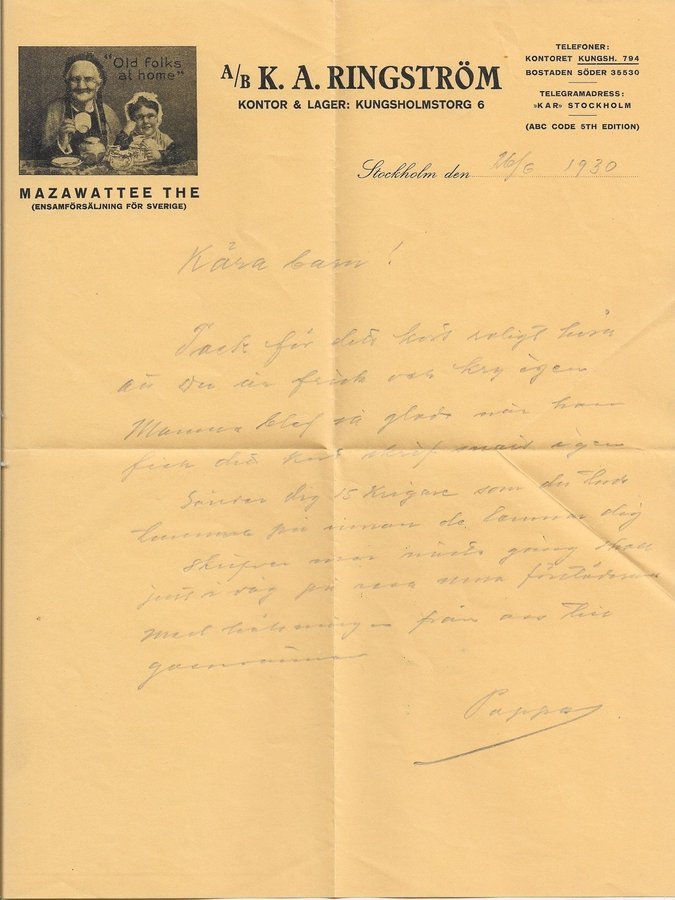 "Old folks
at home"
MAZAWATTEE THE
(ENSAMFÖRSÄLJNING FÖR SVERIGE)
A/B K. A. RINGSTRÖM
KONTOR & LAGER: KUNGSHOLMSTORG 6
TELEFONER:
KONTORET KUNGSH. 794
BOSTADEN SÖDER 35530
TELEGRAMADRESS:
»KAR» STOCKHOLM
(ABC CODE 5TH EDITION)
Stockholm den 26/6 1930
Kära barn!
Tack för det kort roligt höra
att Du är frisk och kry igen
Mamma blef så glad när hon
fick det kort skrif igen
Sänder dig 15 som du
på de lemnar dig
skrifver mer nästa gång skall
just i dag på resa
Med från oss till
Pappa